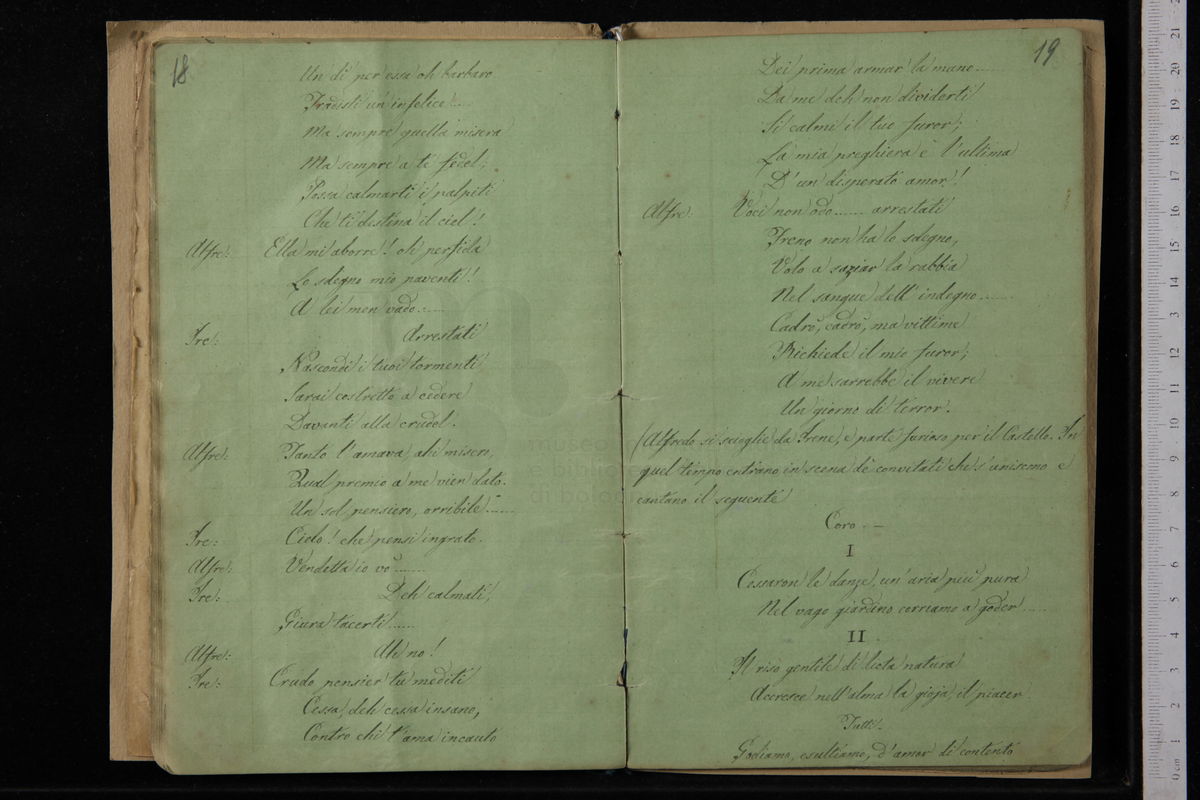 18
Un dì per essa oh barbaro
Tradisti un infelice.....
Ma sempre quella misera
Ma sempre a te fedel;
Possa calmarti i palpiti
Che ti destina il ciel!
Alfre: Ella mi aborre! oh perfida
Lo sdegno mio paventi!
A lei men vado......
Ire: Arrestati
Nascondi i tuoi tormenti
Sarai costretto a cedere
Davanti alla crudel.
Alfre: Tanto l'amava, ahi misero,
Qual premio a me vien dato.
Un sol pensiero, orribile......
Ire: Cielo! che pensi ingrato.
Alfre: Vendetta io vo'......
Ire: Deh calmati,
Giura tacerti......
Alfre: Ah no!
Ire: Crudo pensier tu mediti
Cessa, deh cessa insano,
Contro chi t'ama incauto
19
Dei prima armar la mano.....
Da me deh non dividerti
Si calmi il tuo furor;
La mia preghiera è l'ultima
D'un disperato amor!
Alfre: Voci non odo...... arrestati
Freno non ha lo sdegno,
Volo a saziar la rabbia
Nel sangue dell'indegno......
Cadrò, cadrò, ma vittime
Richiede il mio furor;
A me sarrebbe il vivere
Un giorno di terror.
(Alfredo si scioglie da Irene, e parte furioso per il Castello. In
quel tempo entrano in scena de' convitati che s'uniscono e
cantano il seguente
Coro.
I
Cessaron le danze, un'aria più pura
Nel vago giardino corriamo a goder.....
II
Il riso gentile di lieta natura
Accresce nell'alma la gioja, il piacer
Tutti
Godiamo, esultiamo, d'amor di contento